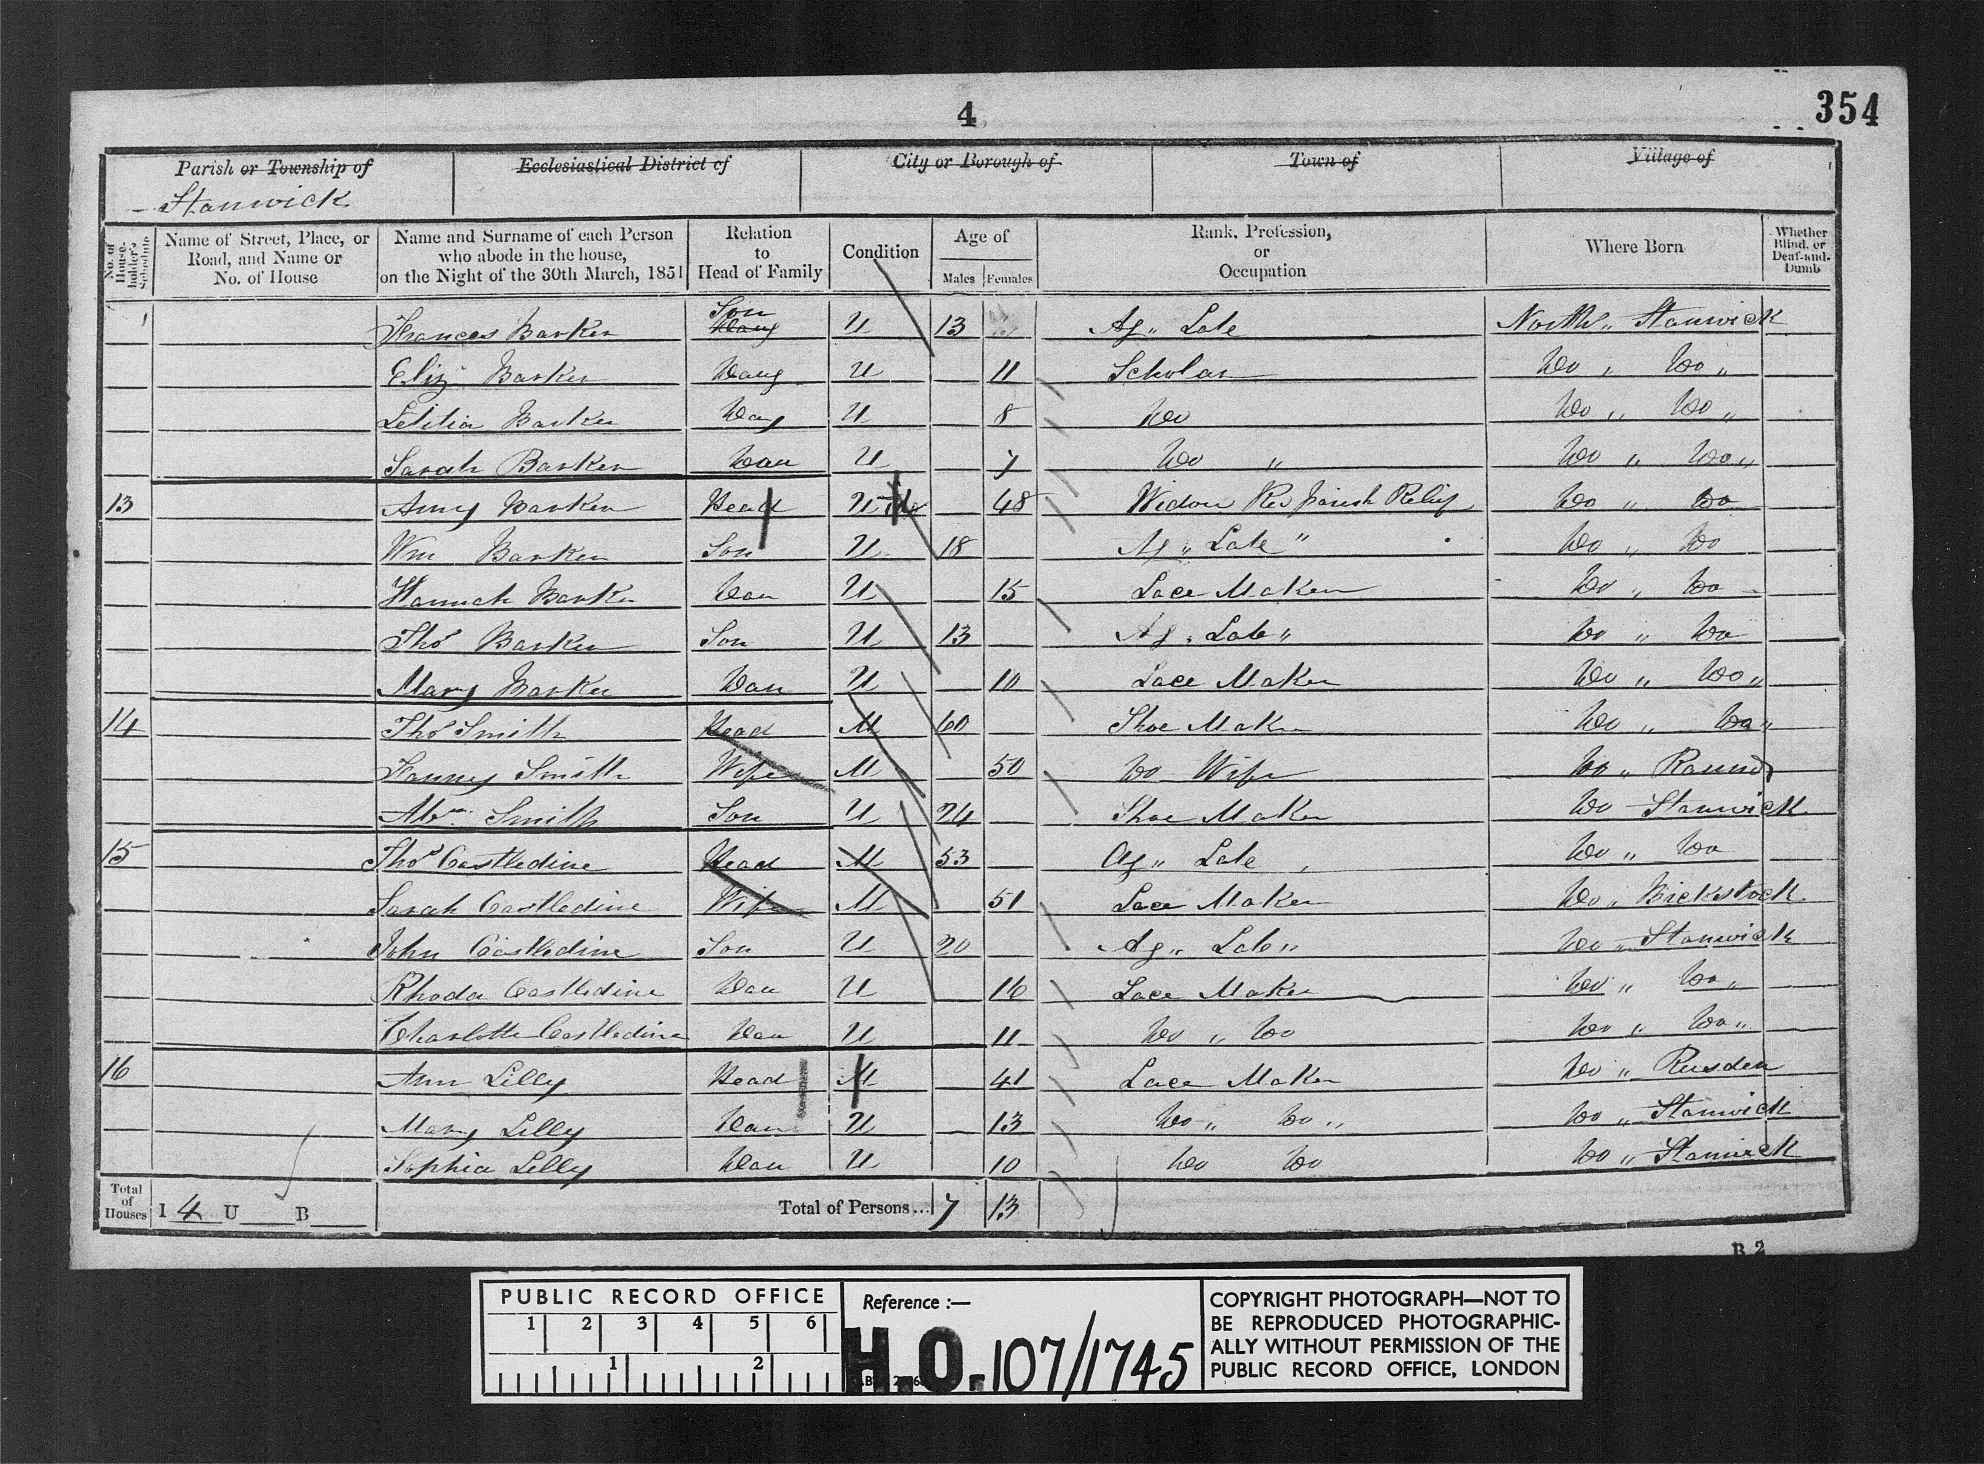 4
354
Parish or Township of
Ecclesiastical District of
City or Borough of
Town of
Village of
Stanwick
No. of Householder's Schedule
Name of Street, Place, or Road, and Name or No. of House
Name and Surname of each Person who abode in the house, on the Night of the 30th March, 1851
Relation to Head of Family
Condition
Age of
Males
Females
Rank, Profession, or Occupation
Where Born
Whether Blind, or Deaf-and-Dumb
Frances Barker Son Daug U 13 Ag " Lab North " Stanwick
Eliz Barker Daug U 11 Scholar Do " Do "
Letitia Barker Dag U 8 Do Do " Do "
Sarah Barker Dau U 7 Do " Do " Do "
13 Amy Barker Head U 48 Widow Rec Parish Relief Do " Do
Wm Barker Son U 18 Ag " Lab " Do " Do
Hannah Barker Dau U 15 Lace Maker Do " Do
Thos Barker Son U 13 Ag " Lab " Do " Do
Mary Barker Dau U 10 Lace Maker Do " Do "
14 Thos Smith Head M 60 Shoe Maker Do " Do "
Fanny Smith Wife M 50 Do Wife Do " Raunds
Abm Smith Son U 24 Shoe Maker Do Stanwick
15 Thos Castledine Head M 53 Ag " Lab Do " Do
Sarah Castledine Wife M 51 Lace Maker Do "
John Castledine Son U 20 Ag " Lab " Do " Stanwick
Rhoda Castledine Dau U 16 Lace Maker Do " Do "
Charlotte Castledine Dau U 11 Do " Do Do " Do "
16 Ann Lilly Head M 41 Lace Maker Do " Rusden
Mary Lilly Dau U 13 Do " Do " Do " Stanwick
Sophia Lilly Dau U 10 Do Do Do " Stanwick
Total of Houses I 4 U B Total of Persons... 7 13
B 2
PUBLIC RECORD OFFICE
1 2 3 4 5 6
1 2
Reference :—
H.O. 107/1745
COPYRIGHT PHOTOGRAPH—NOT TO
BE REPRODUCED PHOTOGRAPHIC-
ALLY WITHOUT PERMISSION OF THE
PUBLIC RECORD OFFICE, LONDON